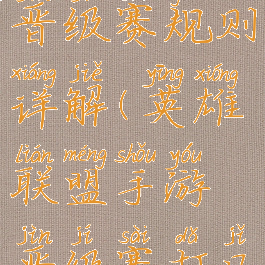 晋级赛规则
xiáng jiě yīng xióng
详解(英雄
lián méng shǒu yóu
联盟手游
jìn jí sài dǎ jǐ
晋级赛打几